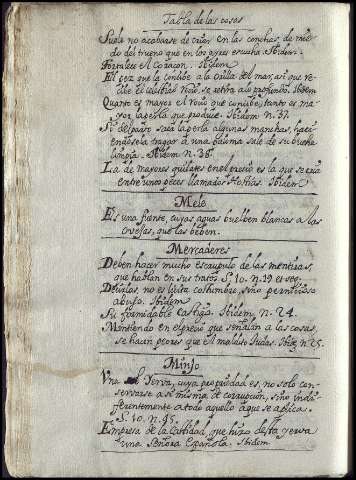 Tabla de las cosas
Suele no acabarse de criar en las conchas, de mie-
do del trueno que en los ayres escucha. Ibidem.
Fortalece el Coraçon. Ibidem
El pez que la concibe a la orilla del mar, asi que re-
cibe el celestial rocio, se retira a lo profundo. Ibidem
Quanto es mayor el rocio que concibe, tanto es ma-
yor la perla que produce. Ibidem n. 37.
Si del parto saca la perla algunas manchas, haci-
endosela tragar a una paloma sale de su buche
limpia. Ibidem n. 38.
La de mayores quilates en el precio es la que se cria
entre unos peces llamados Ibidem
Mele
Es una fuente, cuyas aguas buelben blancas a las
ovejas, que las beben.
Mercaderes
Deben hacer mucho escrupulo de las mentiras,
que hablan en sus tratos S. 10. n. 19 et ser.
Decirlas, no es licita costumbre, sino perniciosa
abuso. Ibidem
Su formidable castigo. Ibidem, n. 24.
Mintiendo en el precio que señalan a las cosas,
se hacen peores que el malvado Judas. Ibid. n. 25.
Minjo
Una Yerva, cuya propiedad es, no solo con-
servarse a si misma de corrupcion, sino indi-
ferentemente a todo aquello a que se aplica.
S. 10. n. 95.
Empresa de la Castidad, que hizo desta yerva
una Señora Española. Ibidem